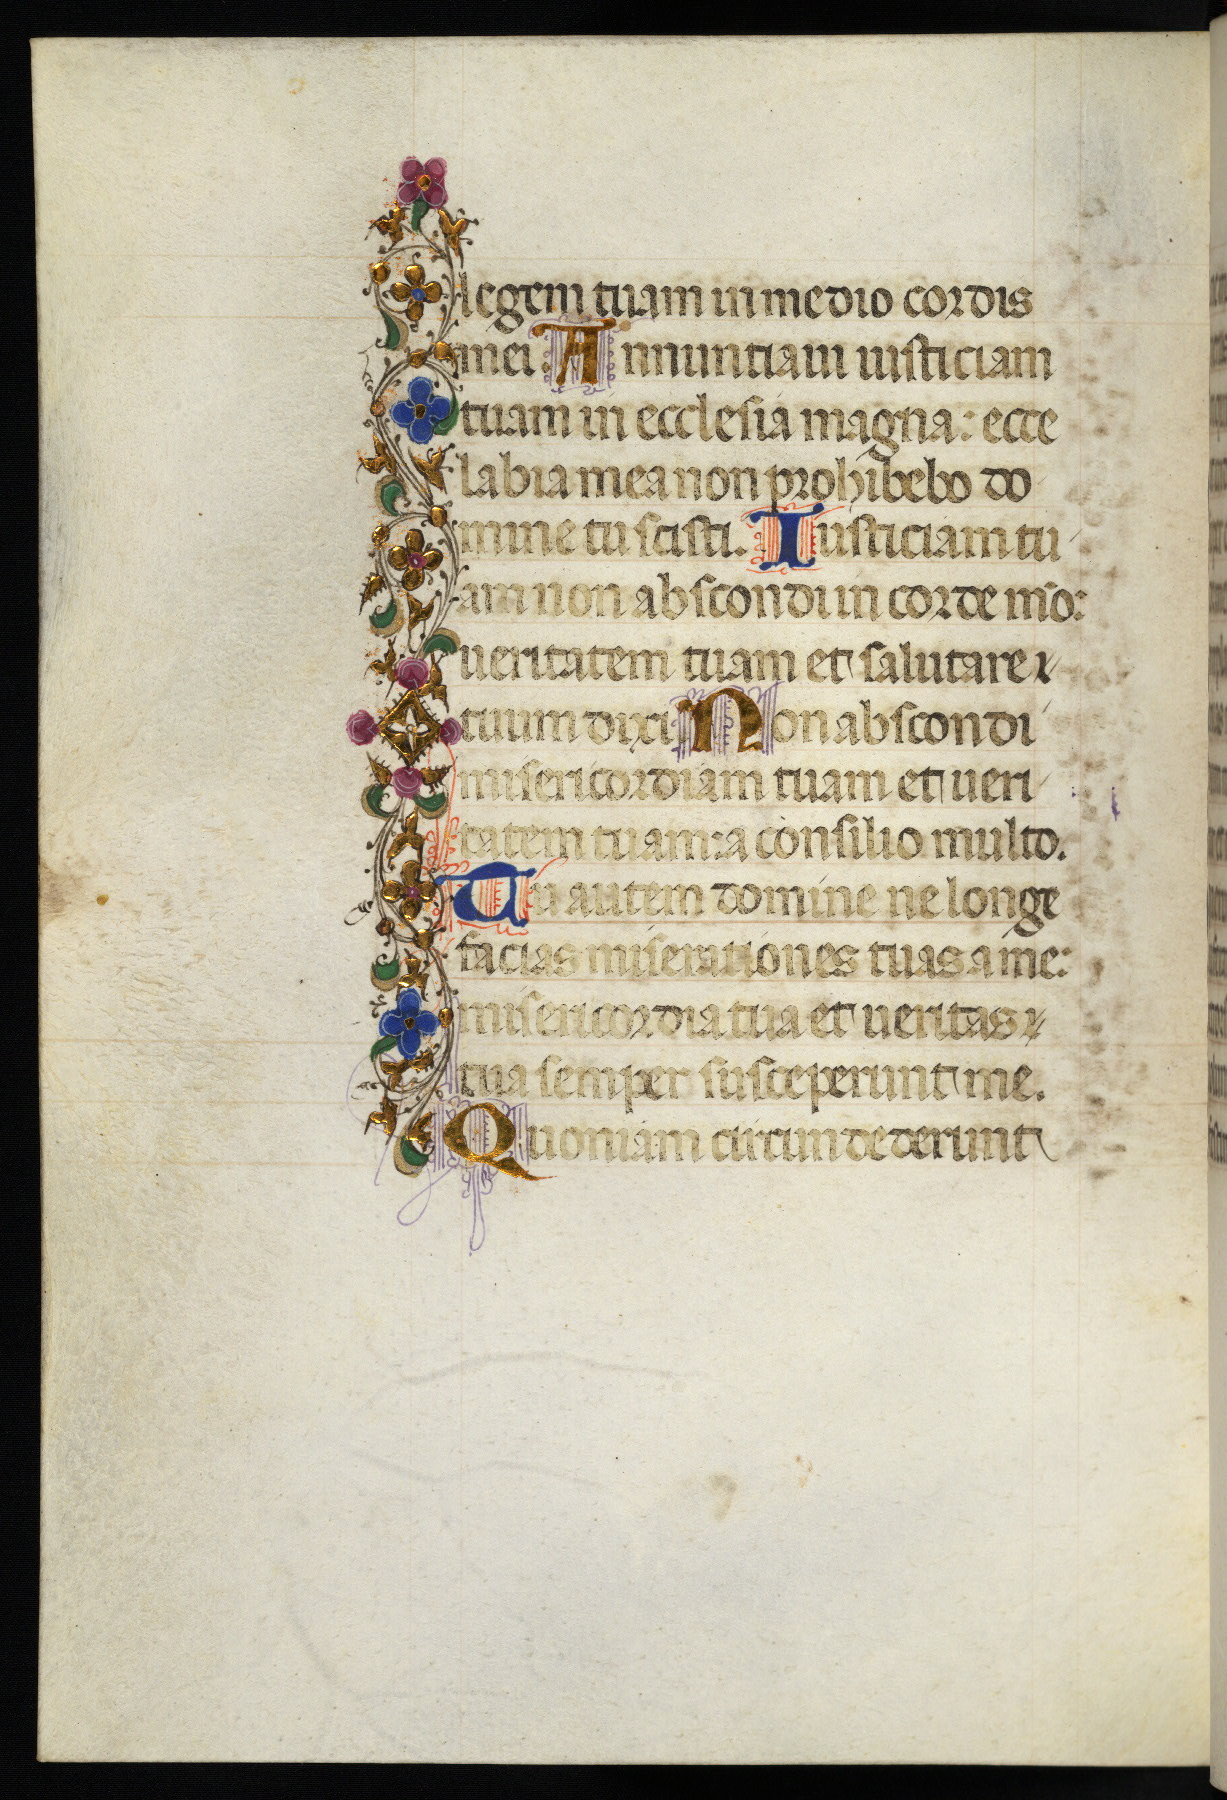 legem tuam in medio cordis
mei. Annuntiavi iusticiam
tuam in ecclesia magna: ecce
labia mea non prohibebo do
mine tu scisti. Iusticiam tu
am non abscondi in corde mo:
veritatem tuam et salutare
tuum dixi Non abscondi
misericordiam tuam et veri
tatem tuam: a consilio multo.
Tu autem domine ne longe
facias miserationes tuas a me:
misericordia tua et veritas
tua semper susceperunt me.
Quoniam circundederunt